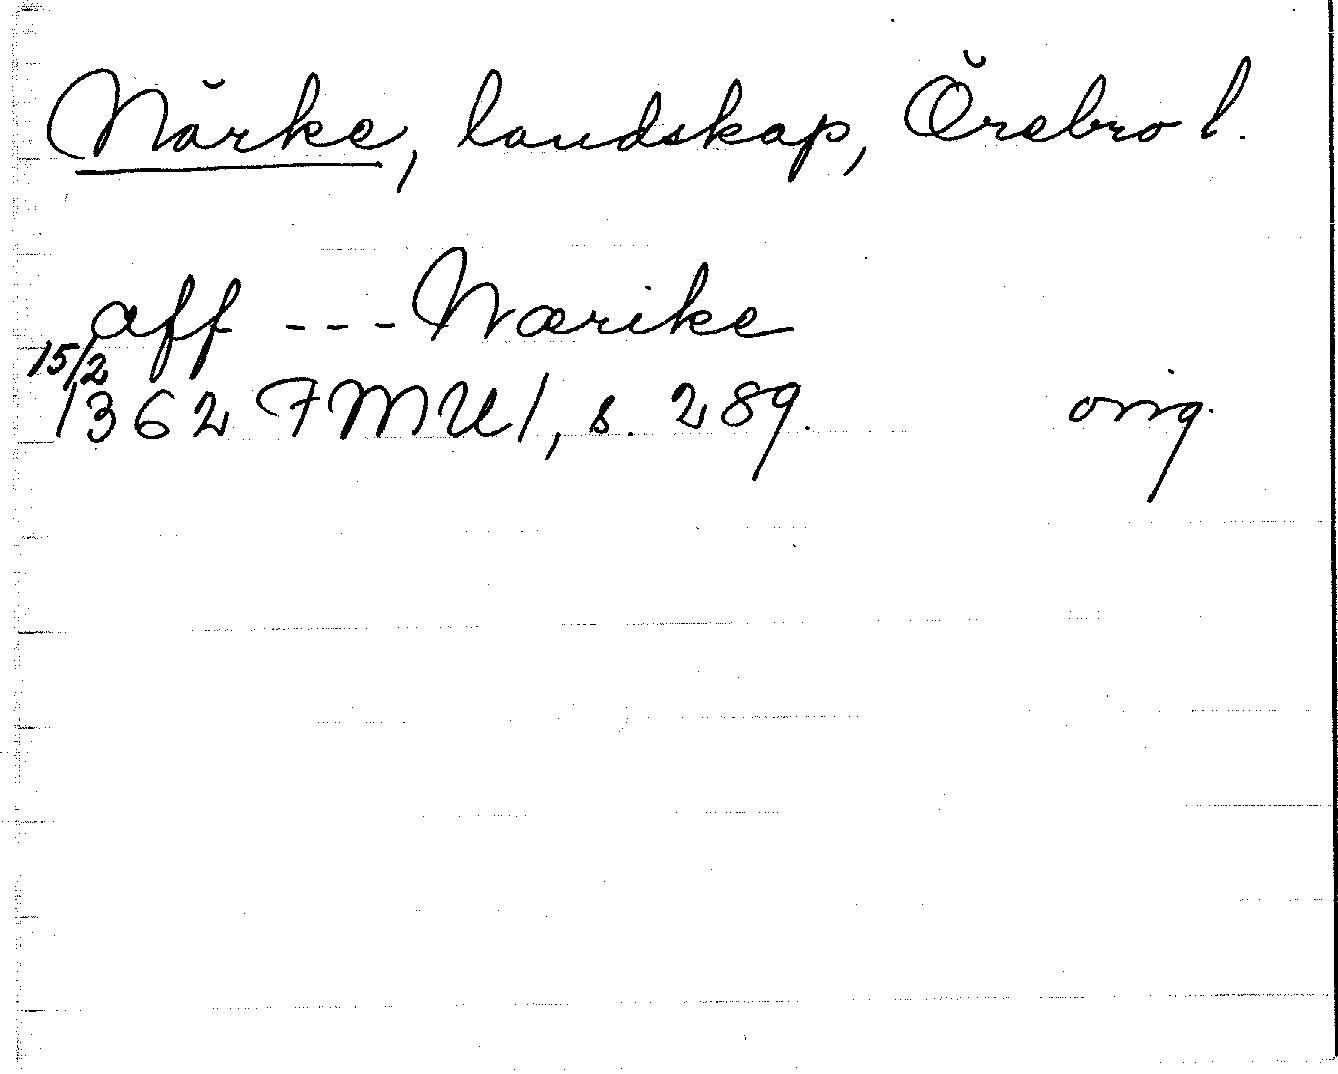 Närke, landskap, Örebro l.
aff --- Nærike
15/2
1362 FMU 1, s. 289. orig.